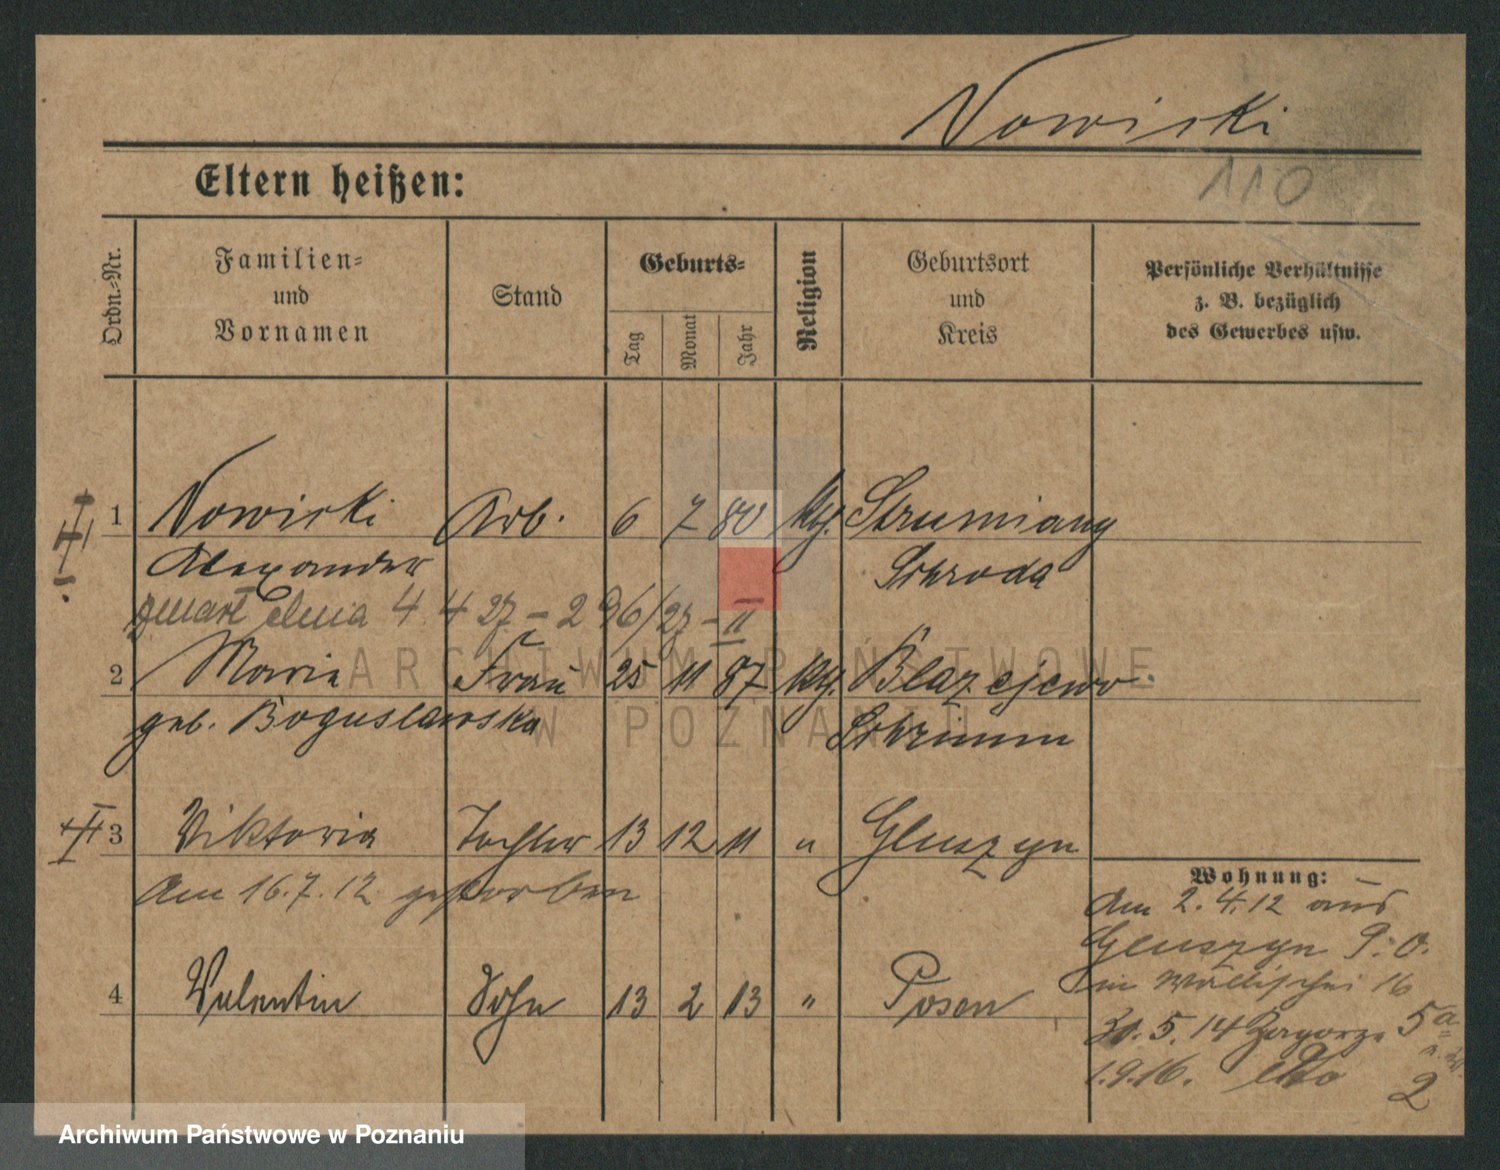 Nowicki
110
Eltern heißen:
Ordn.-Nr.
Familien-
und
Vornamen
Stand
Geburts-
Tag
Monat
Jahr
Religion
Geburtsort
und
Kreis
Persönliche Verhältnisse
z. B. bezüglich
des Gewerbes usw.
1 Nowicki Arb. 6 7 80 kth. Strumiany
Alexander Schroda
zmarł dnia 4. 4 27 - 296/27 - II
2 Maria Frau 25 11 87 kth. Blazejewo
geb. Boguslawska Schrimm
3 Viktoria Tochter 13 12 11 " Gluszyn
Am 16.7.12 gestorben
Wohnung:
Am 2.4.12 aus
Gluszyn P. O.
in Wallischei 16
4 Valentin Sohn 13 2 13 " Posen
30.5.14 Zagorze 5a
1.9.16. dto 2
ARCHIWUM PAŃSTWOWE
W POZNANIU
Archiwum Państwowe w Poznaniu